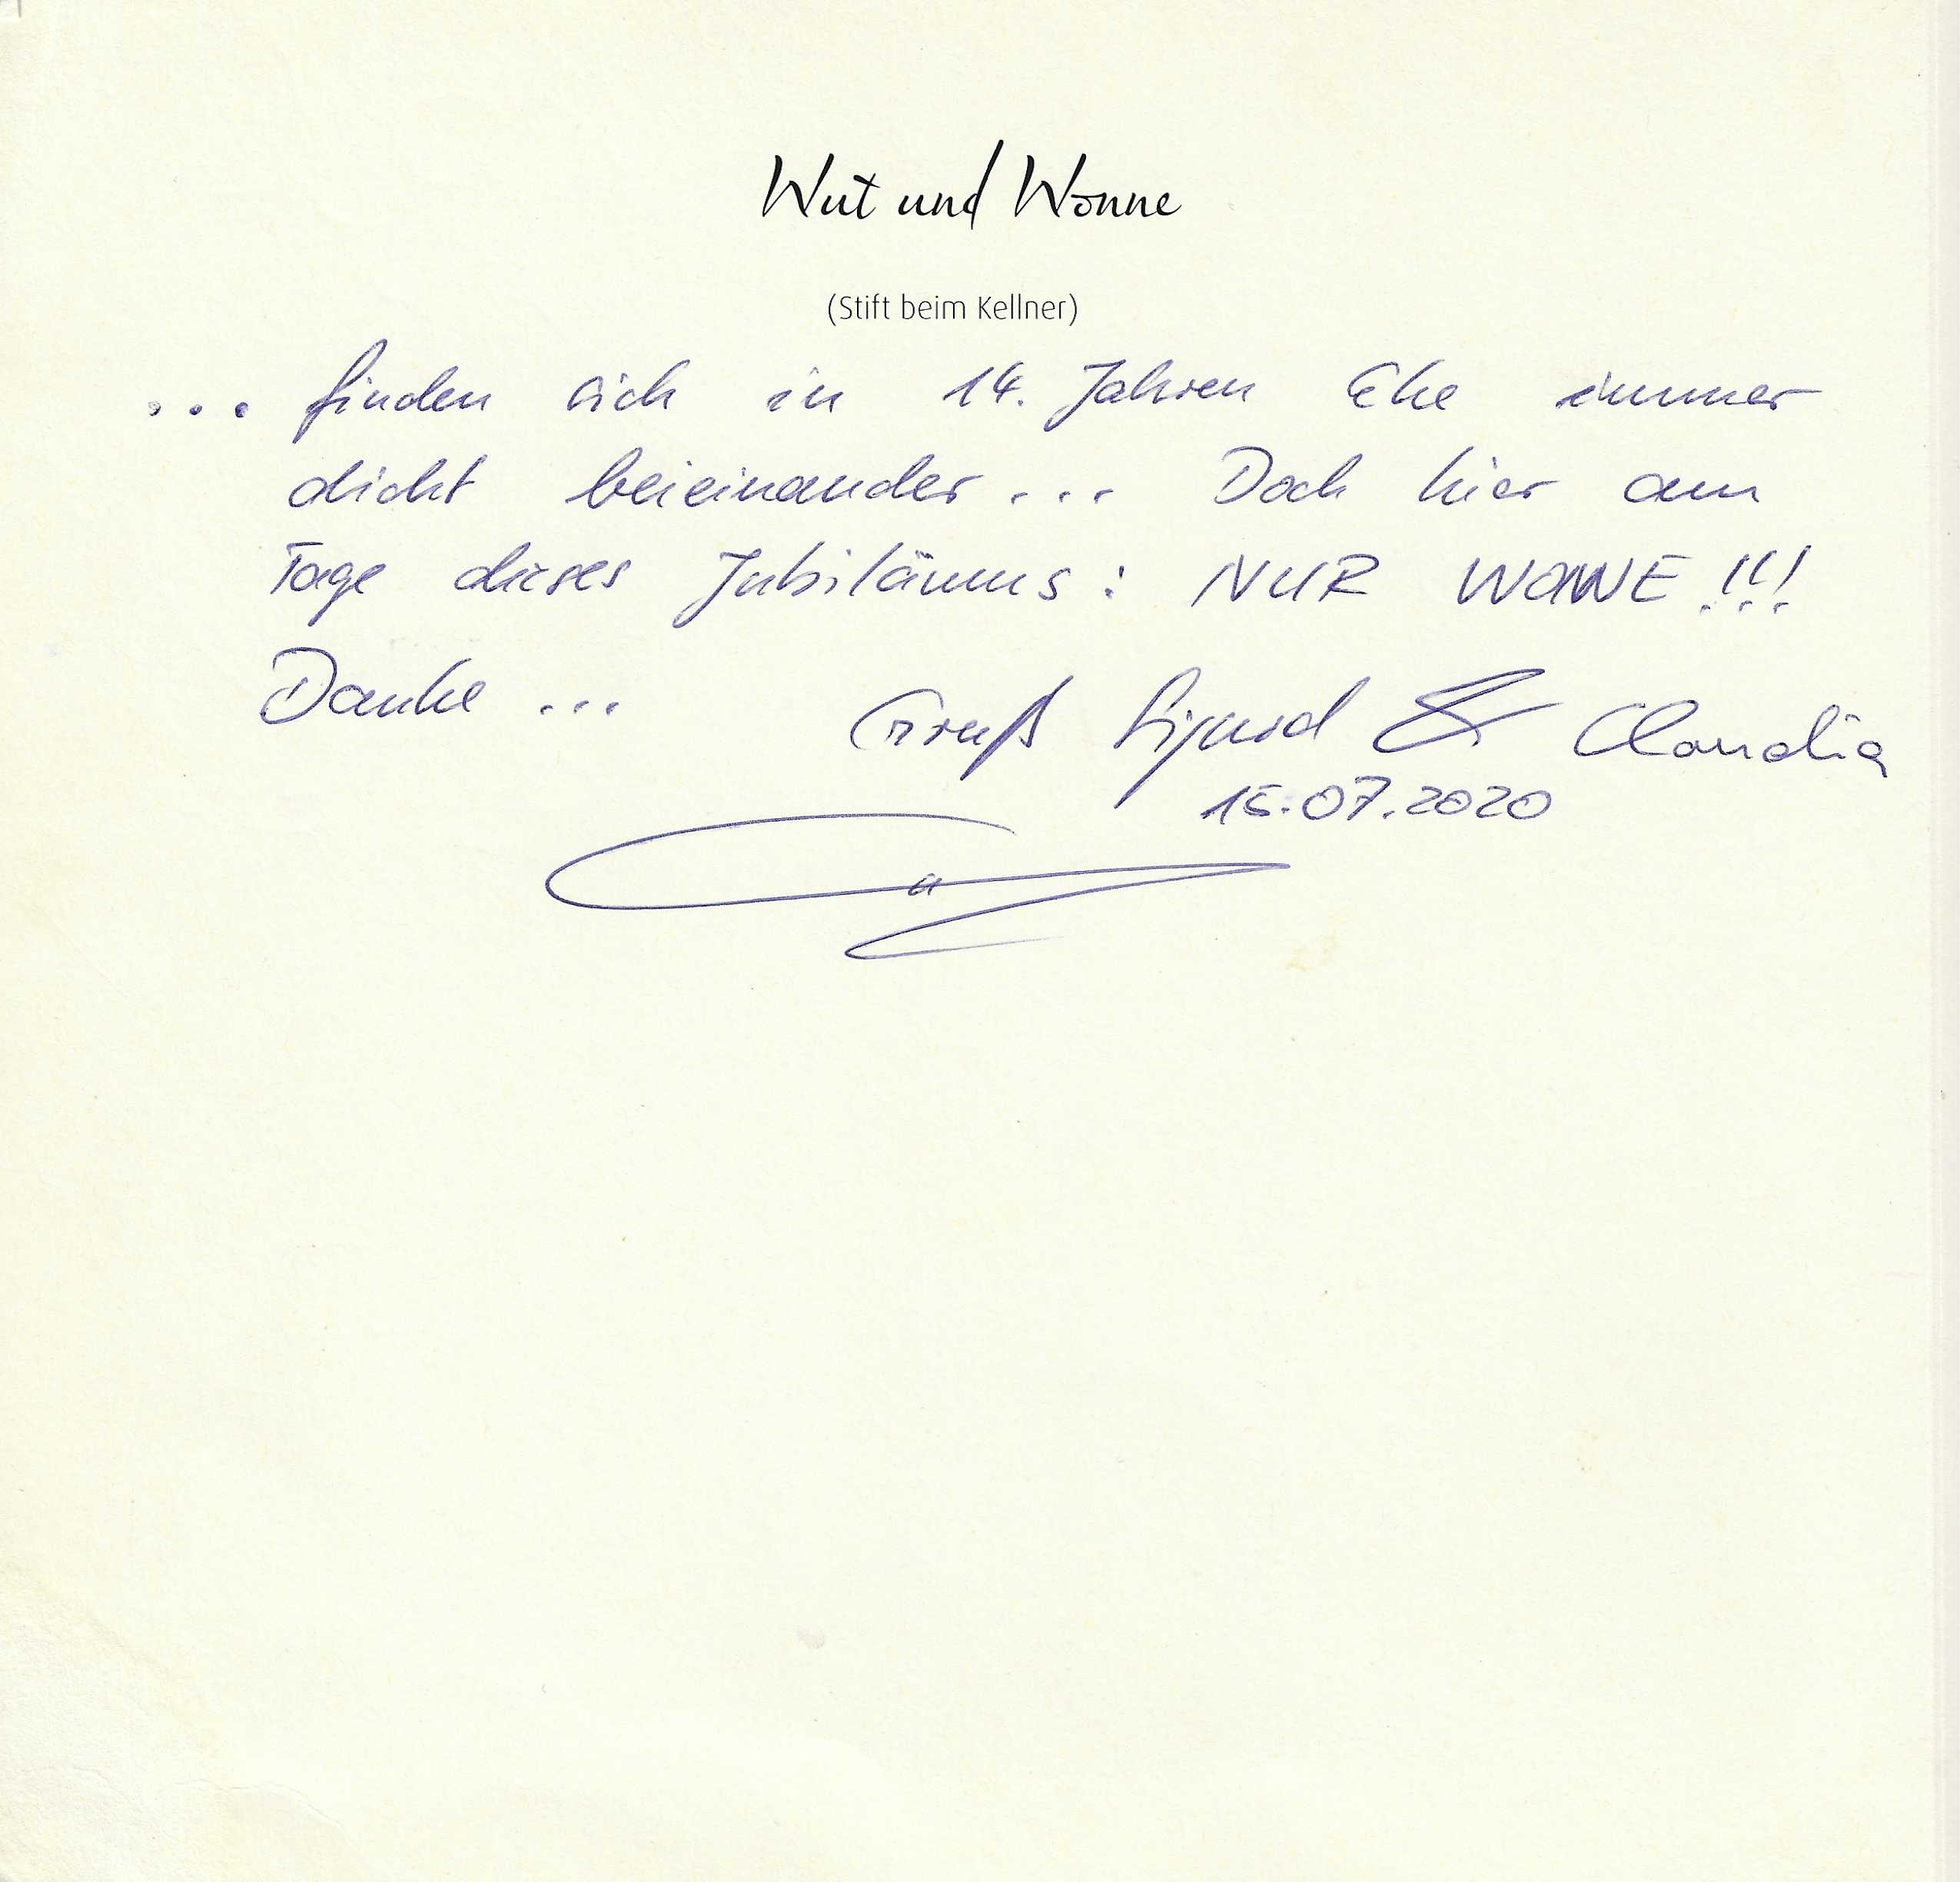 Wut und Wonne
(Stift beim Kellner)
... finden sich in 14. Jahren Ehe immer
dicht beieinander ... Doch hier am
Tage dieses Jubiläums: NUR WONNE!!!
Danke ...
Gruß Sigurd & Claudia
15.07.2020